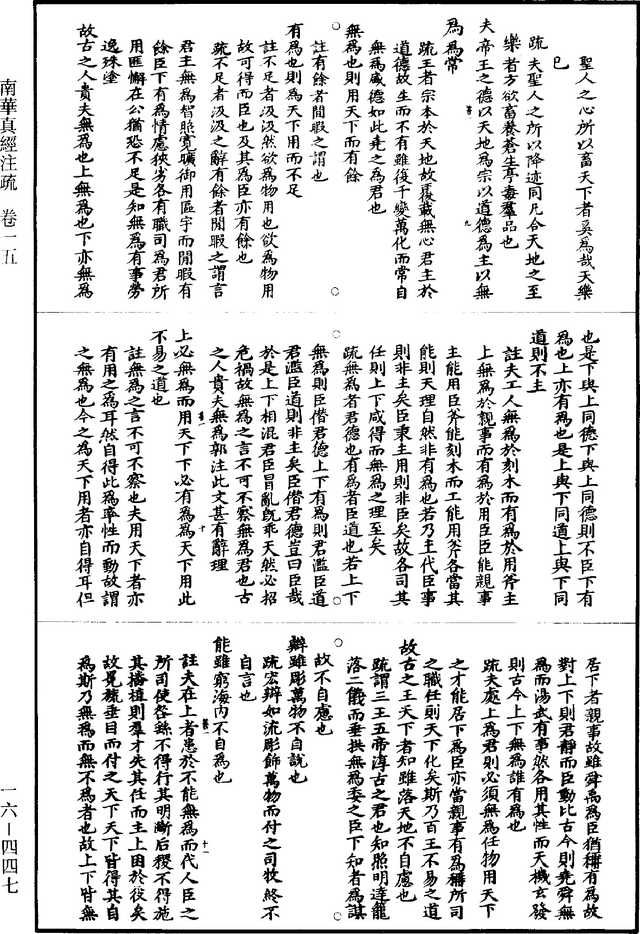 聖人之心所以畜天下者奚為哉天樂
已
疏夫聖人之所以降迹同凡合天地之至
樂者方欲畜養蒼生亭毒羣品也
夫帝王之德以天地為宗以道德為主以無
為為常
疏王者宗本於天地故覆載無心君主於
道德故生而不有雖復千變萬化而常自
無為盛德如此堯之為君也
無為也則用天下而有餘
註有餘者閒暇之謂也
有為也則為天下用而不足
註不足者汲汲然欲為物用也欲為物用
故可得而臣也及其為臣亦有餘也
疏不足者汲汲之辭有餘者閒暇之謂言
君主無為智照寬曠御用區宇而閒暇有
餘臣下有為情慮狹劣各有職司為君所
用匪懈在公猶恐不足是知無為有事勞
逸殊塗
故古之人貴夫無為也上無為也下亦無為
也是下與上同德下與上同德則不臣下有
為也上亦有為也是上與下同道上與下同
道則不主
註夫工人無為於刻木而有為於用斧主
上無為於親事而有為於用臣臣能親事
主能用臣斧能刻木而工能用斧各當其
能則天理自然非有為也若乃主代臣事
則非主矣臣秉主用則非臣矣故各司其
任則上下咸得而無為之理至矣
疏無為者君德也有為者臣道也若上下
無為則臣僭君德上下有為則君濫臣道
君濫臣道則非主矣臣僭君德豈曰臣哉
於是上下相混君臣冒亂既乖天然必招
危禍故無為之言不可不察無為君也古
之人貴夫無為郭注此文甚有辭理
上必無為而用天下下必有為為天下用此
不易之道也
註無為之言不可不察也夫用天下者亦
有用之為耳然自得此為率性而動故謂
之無為也今之為天下用者亦自得耳但
居下者親事故雖舜禹為臣猶稱有為故
對上下則君靜而臣動比古今則堯舜無
為而湯武有事然各用其性而天機玄發
則古今上下無為誰有為也
疏夫處上為君則必須無為任物用天下
之才能居下為臣亦當親事有為稱所司
之職任則天下化矣斯乃百王不易之道
故古之王天下者知雖落天地不自慮也
疏謂三王五帝淳古之君也知照明達籠
落二儀而垂拱無為委之臣下知者為謀
故不自慮也
辯雖彫萬物不自說也
疏宏辯如流彫飾萬物而付之司牧終不
自言也
能雖窮海內不自為也
註夫在上者患於不能無為而代人臣之
所司使咎繇不得行其明斷后稷不得施
其播植則羣才失其任而主上困於役矣
故冕旒垂目而付之天下天下皆得其自
為斯乃無為而無不為者也故上下皆無
南華真經注疏 卷一五
一六－四四七